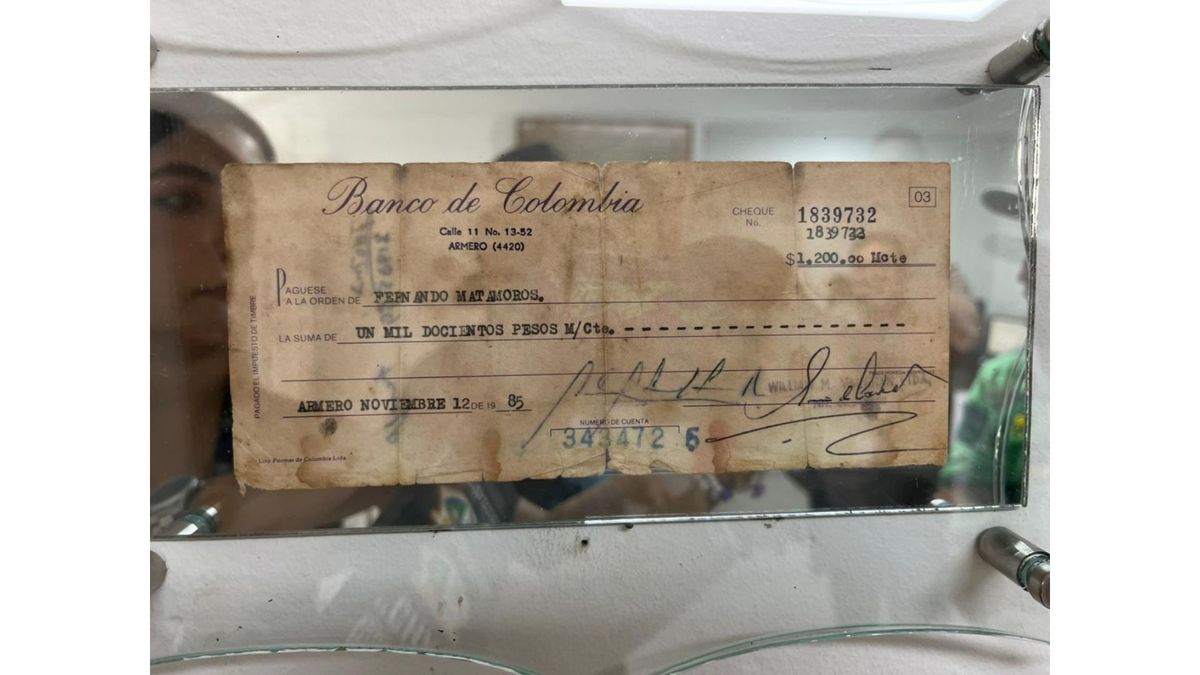 Banco de Colombia
Calle 11 No. 13-52
ARMERO (4420)
03
CHEQUE No. 1839732
1839732
$1.200.oo Mcte
PAGUESE A LA ORDEN DE FERNANDO MATAMOROS.
LA SUMA DE UN MIL DOCIENTOS PESOS M/Cte. - - - - - - - - - - - - - - - - - - -
WILLIAM M. LTDA.
ARMERO NOVIEMBRE 12 DE 19 85
NUMERO DE CUENTA
343472 6
PAGADO EL IMPUESTO DE TIMBRE
Lito Formas de Colombia Ltda